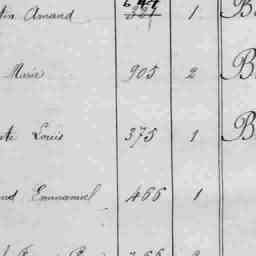 tin Amand 1 B
Marie 905 2 B
te Louis 375 1 B
Emmanuel 466 1